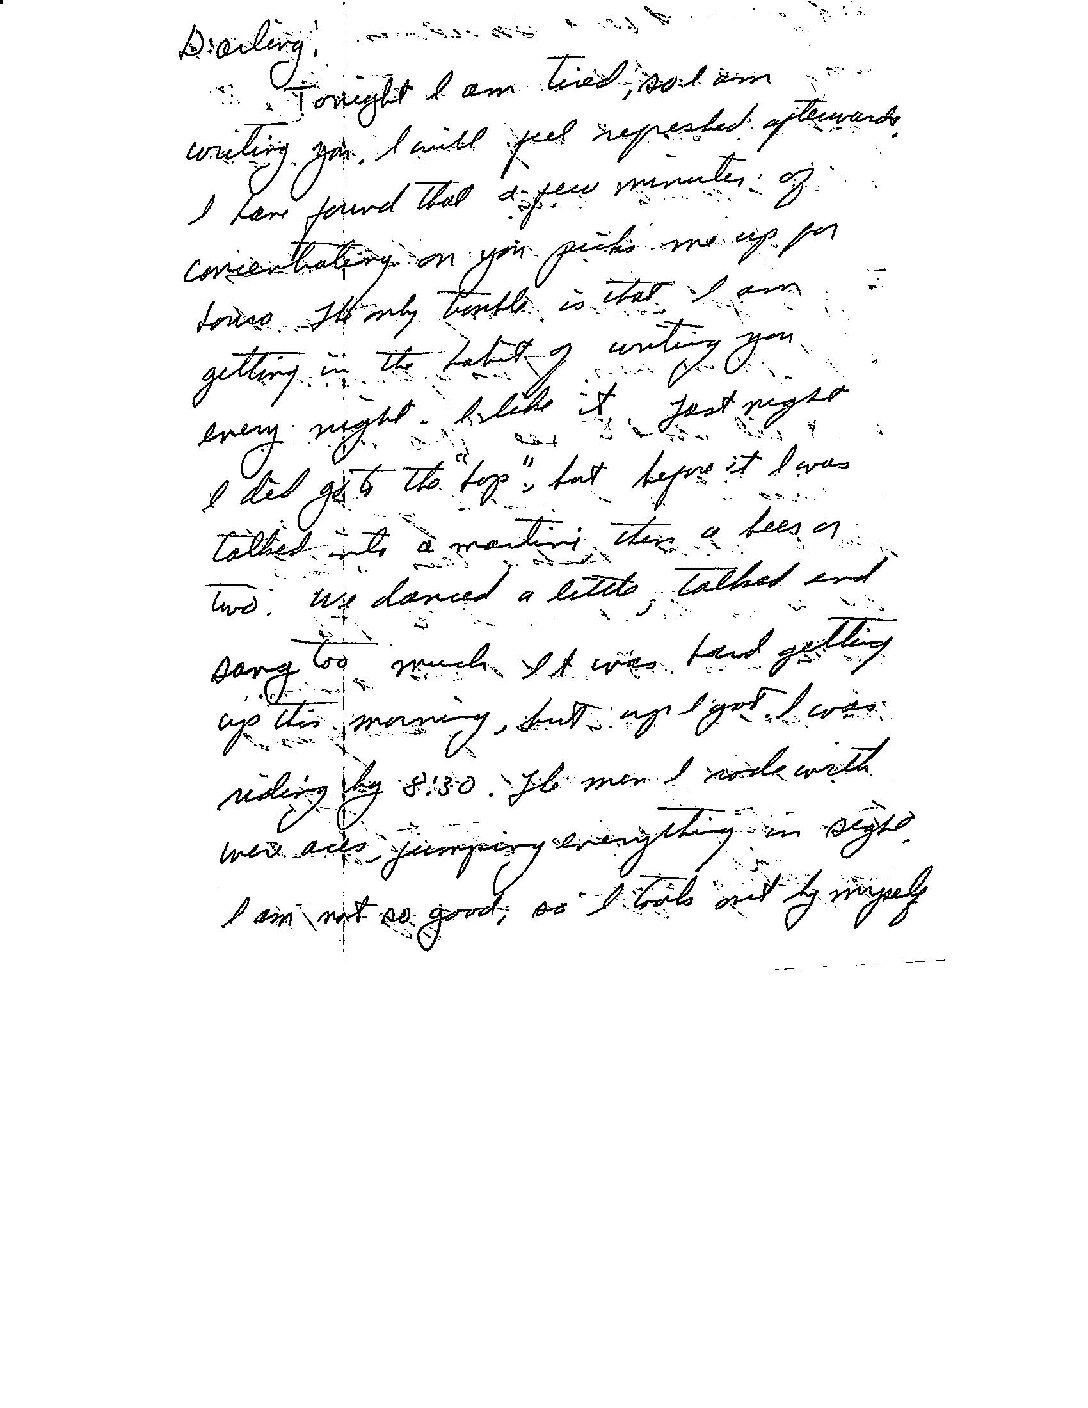 Darling:
Tonight I am tired, so I am
writing you. I will feel refreshed afterwards.
I have found that a few minutes of
concentrating on you picks me up for
hours. The only trouble is that I am
getting in the habit of writing you
every night. I like it. Last night
I did go to the "top", but before it I was
talked into a martini, then a beer or
two. We danced a little, talked and
sang too much. It was hard getting
up this morning, but up I got. I was
riding by 8:30. The men I rode with
were aces, jumping everything in sight.
I am not so good, so I took out by myself